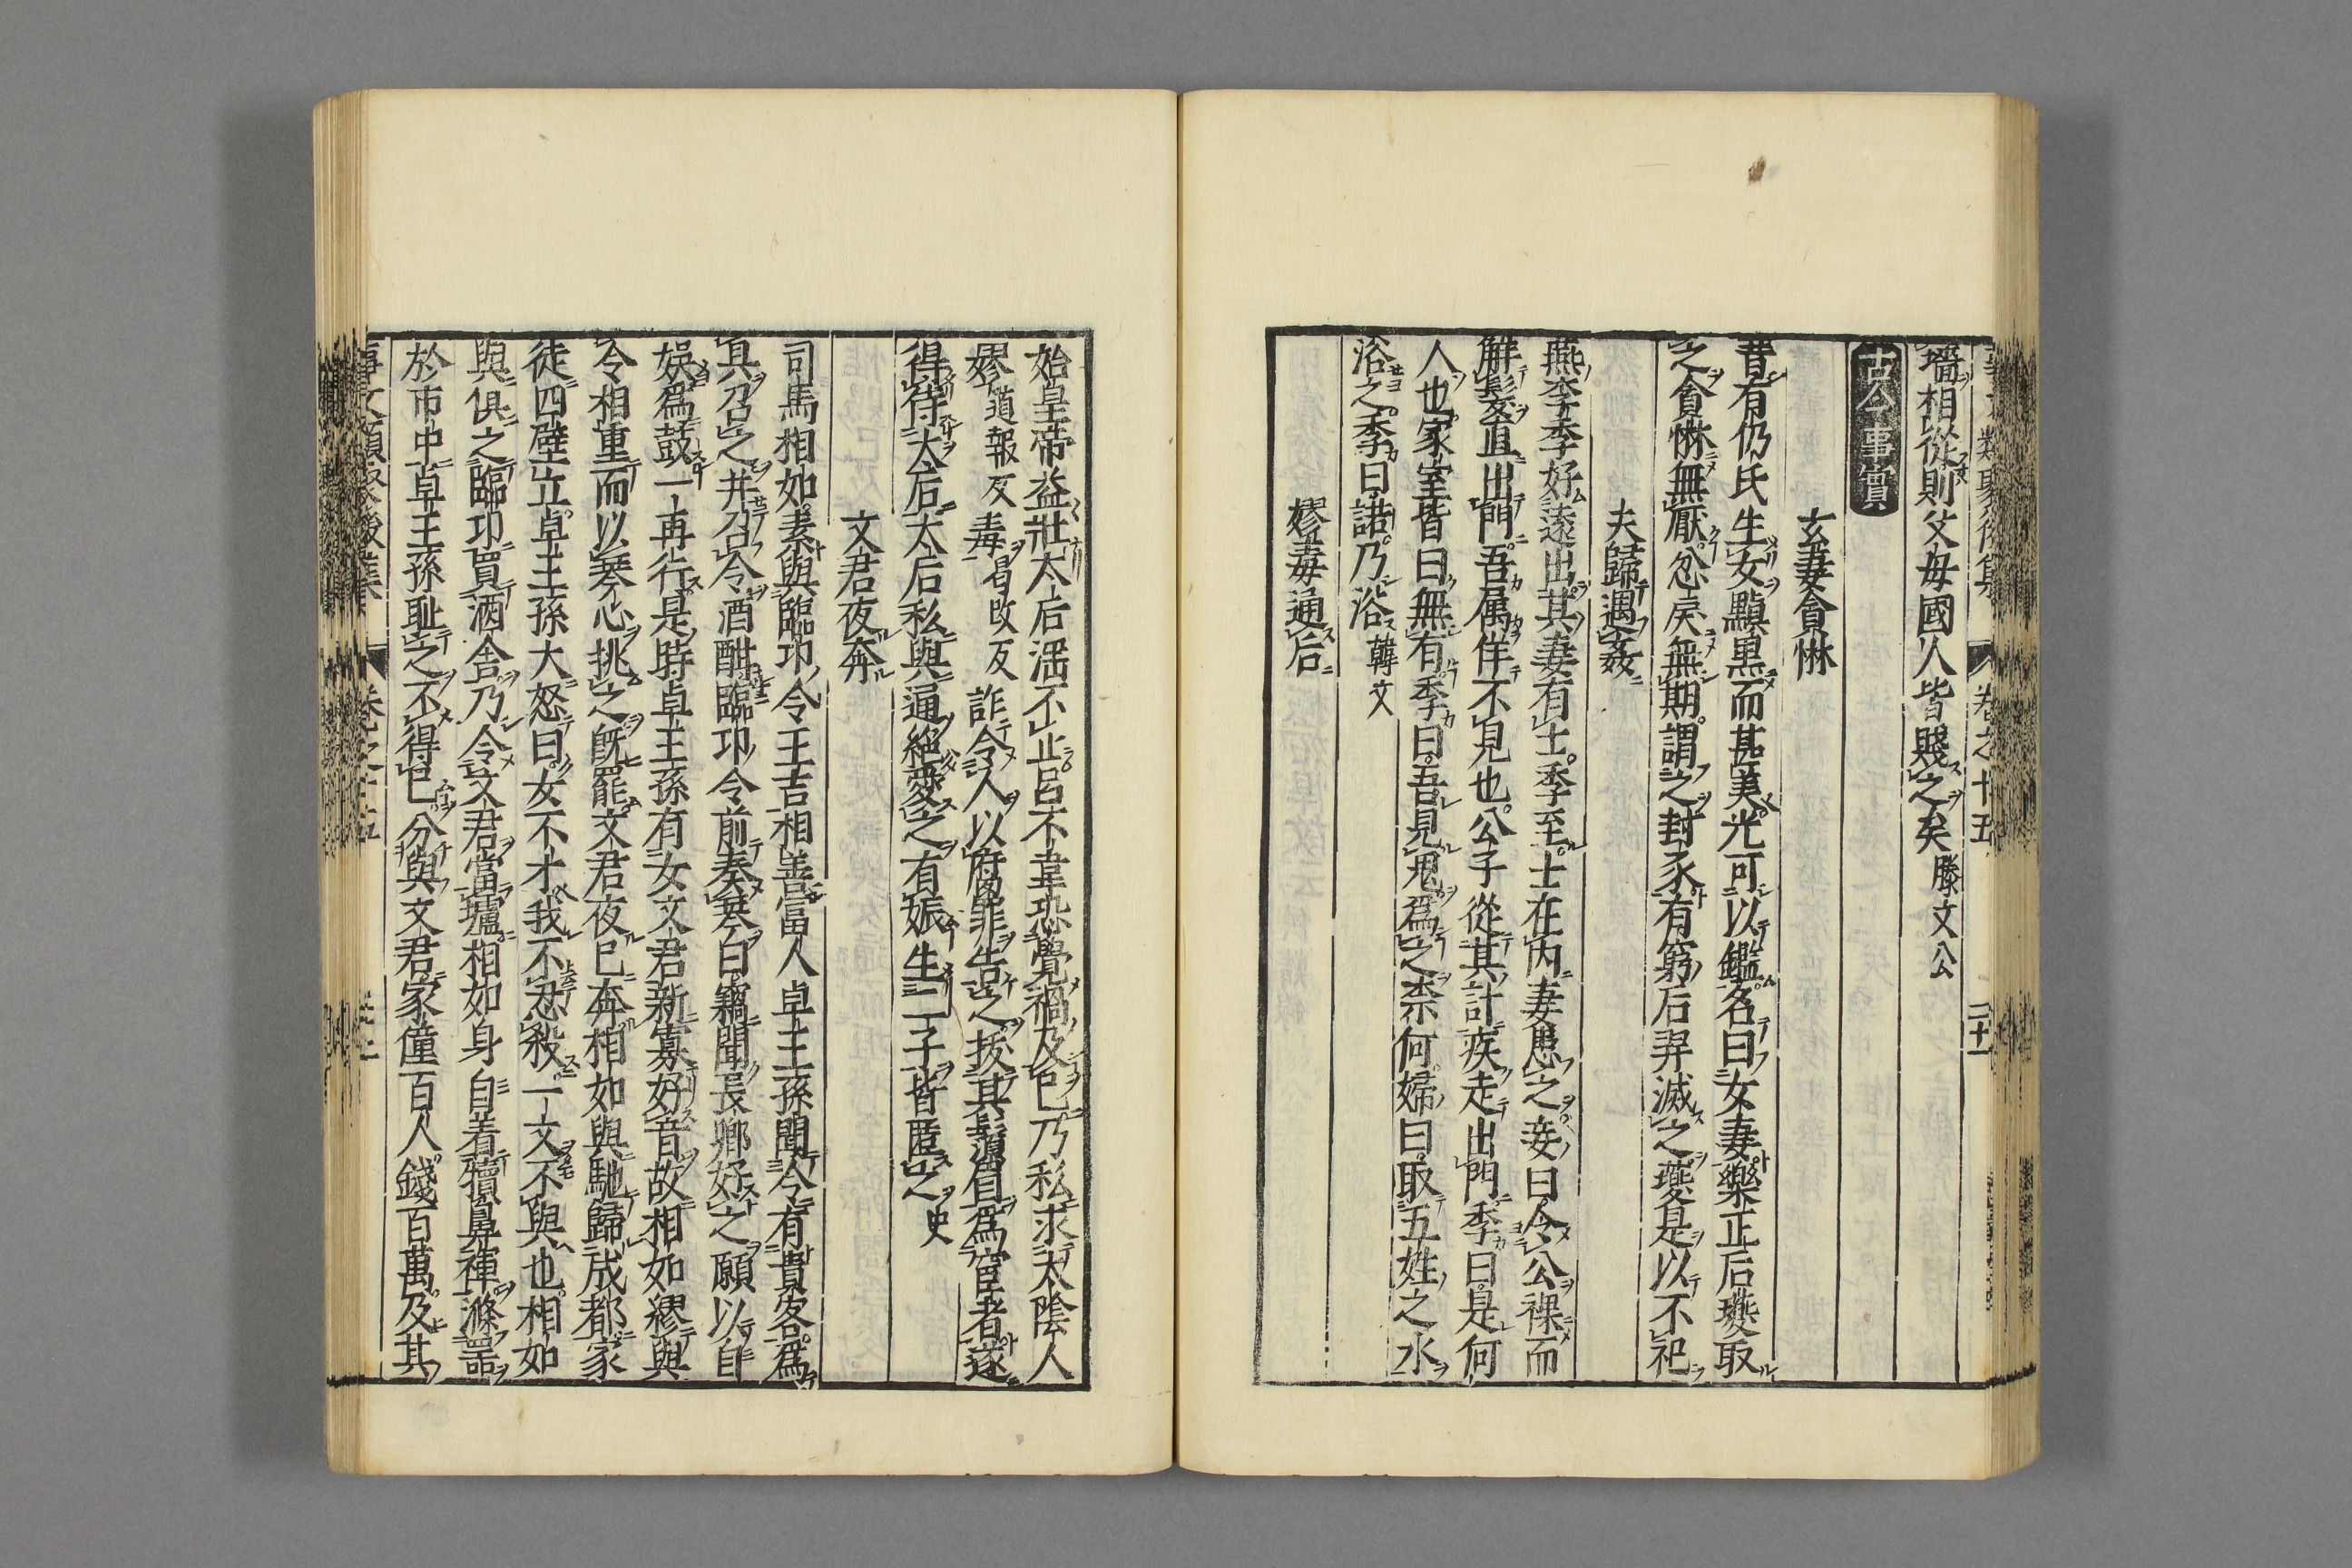 墻相從則父母國人皆賤之矣 滕文公
古今事實
玄妻貪惏
昔有仍氏生女黰黒而甚美光可以鑑名曰女妻樂正后夔取
之貪惏無厭忿戾無期謂之封豕有窮后羿滅之夔是以不祀
夫歸遇姦
燕李季好遠出其妻有士季至士在内妻患之妾曰令公裸而
解髪直出門吾属佯不見也公子從其計疾走出門季曰是何
人也家室皆曰無有季曰吾見鬼爲之柰何婦曰取五姓之水
浴之季曰諾乃浴 韓文
嫪毐通后
始皇帝益壯太后滛不止呂不韋恐覺禍及已乃私求大陰人
嫪 道報反 毒 曷改反 詐令人以腐罪告之拔其鬚眉爲宦者遂
得待太后太后私與通絶愛之有娠生二子皆匿之 史
文君夜奔
司馬相如素與臨邛令王吉相善富人卓王孫聞令有貴客爲
具召之并召令酒酣臨邛令前奏琴曰竊聞長卿好之願以自
娯爲鼓一再行是時卓王孫有女文君新寡好音故相如繆與
令相重而以琴心挑之既罷文君夜已奔相如與馳歸成都家
徒四壁立卓王孫大怒曰女不才我不忍殺一文不與也相如
與俱之臨邛買酒舎乃令文君當壚相如身自着犢鼻褌滌噐
於市中卓王孫耻之不得已分與文君家僮百人錢百萬及其